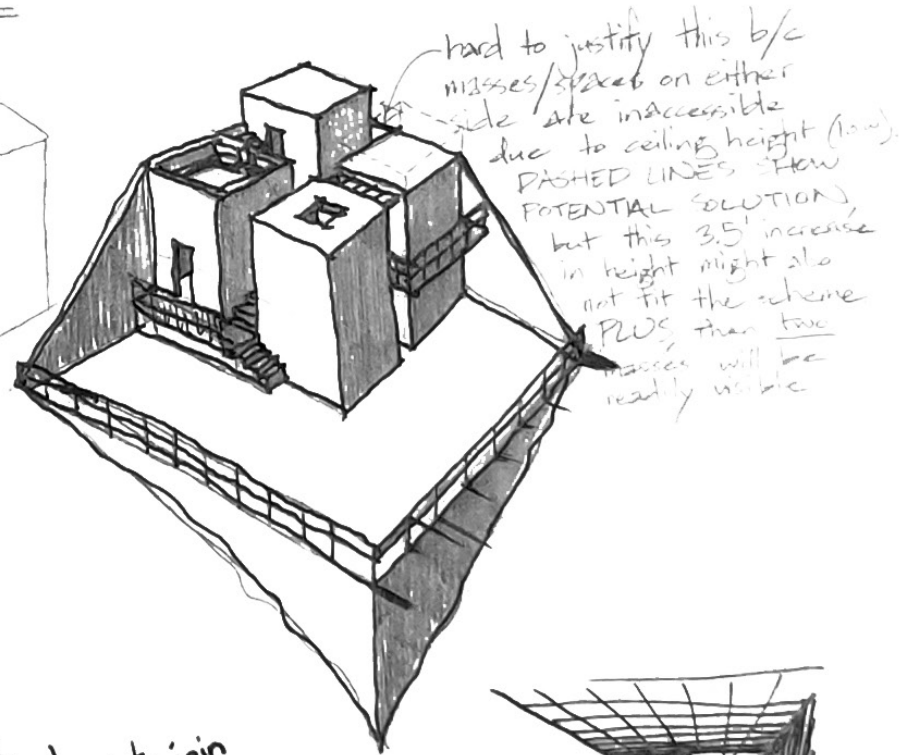 hard to justify this b/c
masses/spaces on either
side are inaccessible
due to ceiling height (low).
DASHED LINES SHOW
POTENTIAL SOLUTION,
but this 3.5' increase
in height might also
not fit the scheme
PLUS, then two
masses will be
readily visible